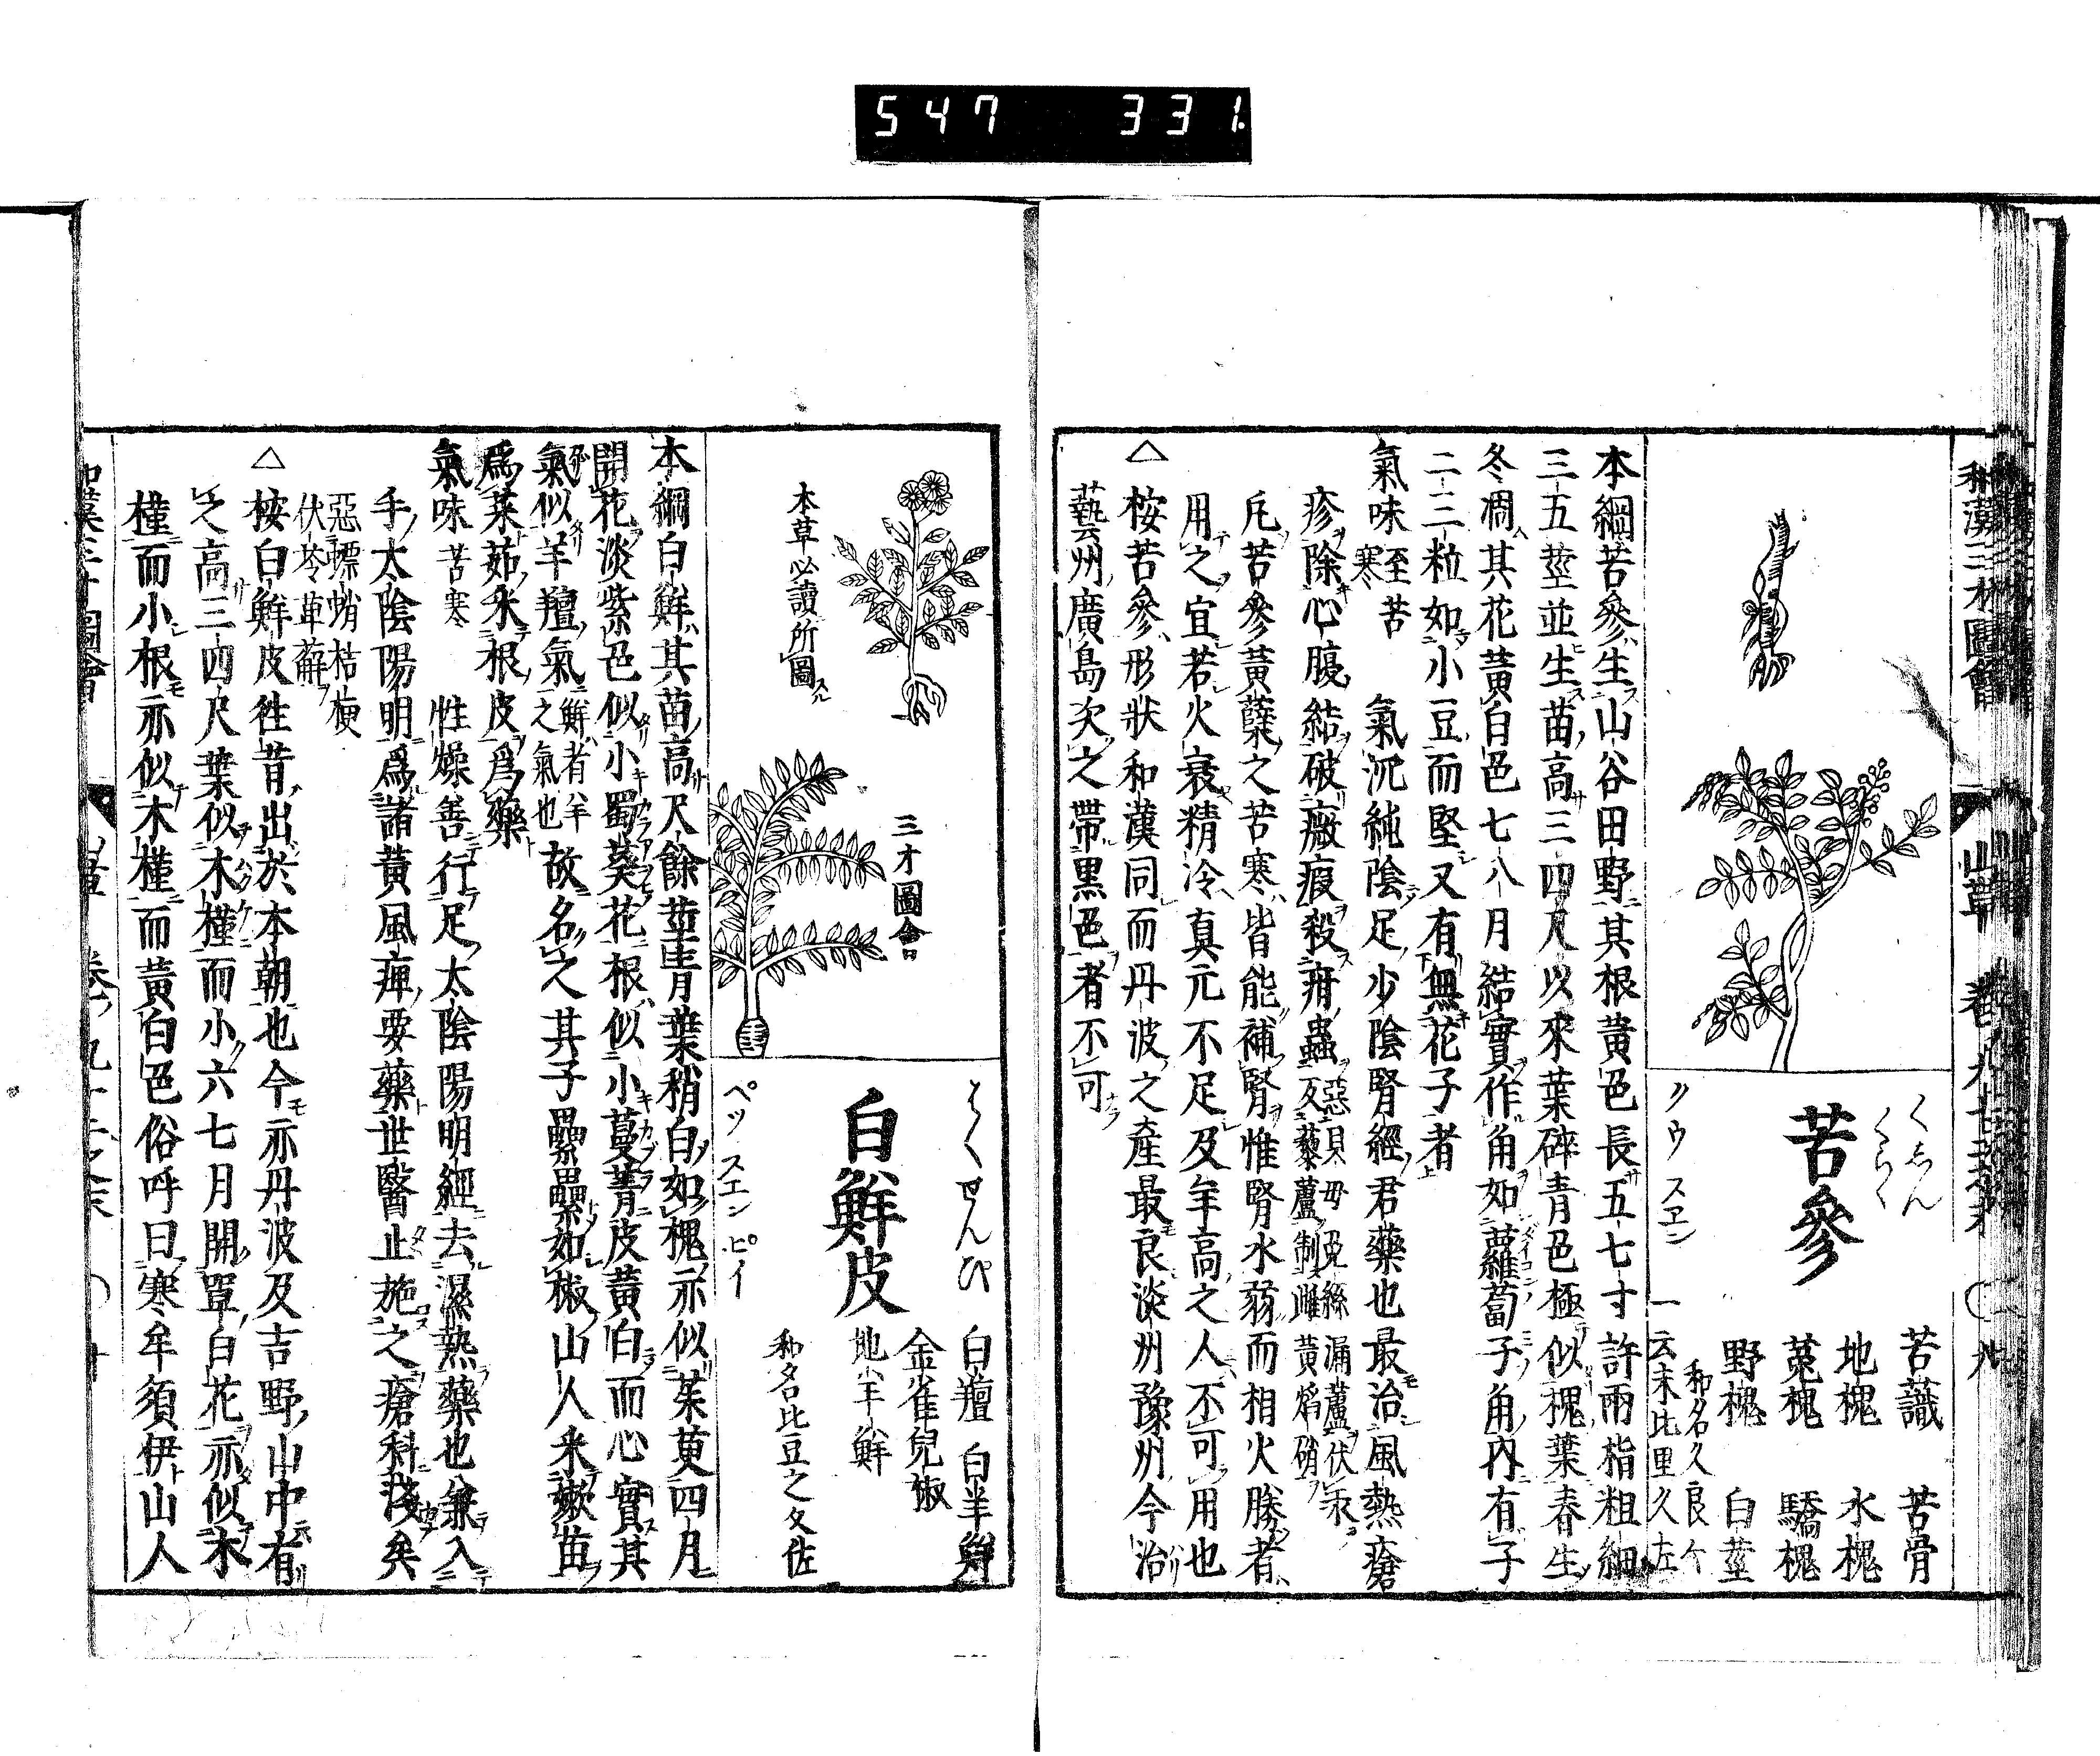 547 331.
和漢三才圖會 山草 卷九十二之末 ○ 九
くしん
くらく
苦參
クウ スヱン
苦識 苦骨
地槐 水槐
菟槐 驕槐
野槐 白莖
和名久良々
一云末比里久左
本綱苦參生山谷田野其根黃色長五七寸許兩指粗細
三五莖並生苗高三四尺以來葉碎青色極似槐葉春生
冬凋其花黃白色七八月結實作角如蘿蔔子角內有子
二三粒如小豆而堅又有無花子者
氣味 至苦寒 氣沉純陰足少陰腎經君藥也最治風熱瘡
疹除心腹結破癥瘕殺疳蟲 惡貝母兔絲漏蘆伏汞
及藜蘆制雌黃焰硝
凡苦參黃蘗之苦寒皆能補腎惟腎水弱而相火勝者
用之宜若火衰精冷真元不足及年高之人不可用也
△桉苦參形狀和漢同而丹波之產最良淡州豫州今治
藝州廣島次之帶黑色者不可
本草必讀所圖
三才圖會
はくせんひ
白鮮皮
ペッ スエン ピイ
白羶 白羊鮮
金雀兒椒
地羊鮮
和名比豆之久佐
本綱白鮮其苗高尺餘莖青葉稍白如槐亦似茱萸四月
開花淡紫色似小蜀葵花根似小蔓菁皮黃白而心實其
氣似羊羶氣 鮮者羊之氣也 故名之其子纍纍如椒山人采嫩苗
爲菜茹采根皮爲藥
氣味 苦寒 性燥善行足太陰陽明經去濕熱藥也兼入
手太陰陽明爲諸黃風痺要藥世醫止施之瘡科淺矣
惡螵蛸桔梗
伏苓萆薢
△桉白鮮皮徃昔出於本朝也今亦丹波及吉野山中有
之高三四尺葉似木槿而小六七月開單白花亦似木
槿而小根亦似木槿而黃白色俗呼曰寒牟須伊山人
和漢三才圖會